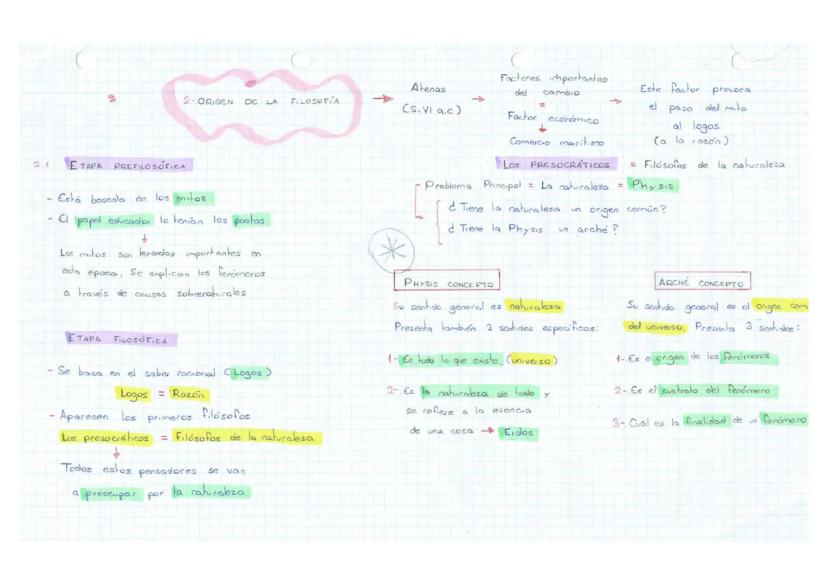 2- ORIGEN DE LA FILOSOFÍA
Atenas
(S.VI a.c)
Factores importantes
del cambio
=
Factor económico
Comercio marítimo
Este factor provoca
el paso del mito
al logos
(a la razón)
2.1 ETAPA PREFILOSÓFICA
- Está basada en los mitos
- El papel educador lo tenían los poetas
Los mitos son leyendas importantes en
esta época. Se explican los fenómenos
a través de causas sobrenaturales
ETAPA FILOSÓFICA
- Se basa en el saber racional (Logos)
Logos = Razón
- Aparecen los primeros filósofos
Los presocráticos = Filósofos de la naturaleza
Todos estos pensadores se van
a preocupar por la naturaleza
LOS PRESOCRÁTICOS = Filósofos de la naturaleza
- Problema Principal = La naturaleza = Physis
¿Tiene la naturaleza un origen común?
¿Tiene la Physis un arché?
PHYSIS CONCEPTO
Su sentido general es naturaleza
Presenta también 2 sentidos específicos:
1- Es todo lo que existe, (universo)
2- Es la naturaleza de todo y
se refiere a la esencia
de una cosa → Eidos
ARCHÉ CONCEPTO
Su sentido general es el origen com
del universo. Presenta 3 sentidos:
1-. Es el origen de los fenómenos
2-. Es el sustrato del fenómeno
3-. Cuál es la finalidad de un fenómeno